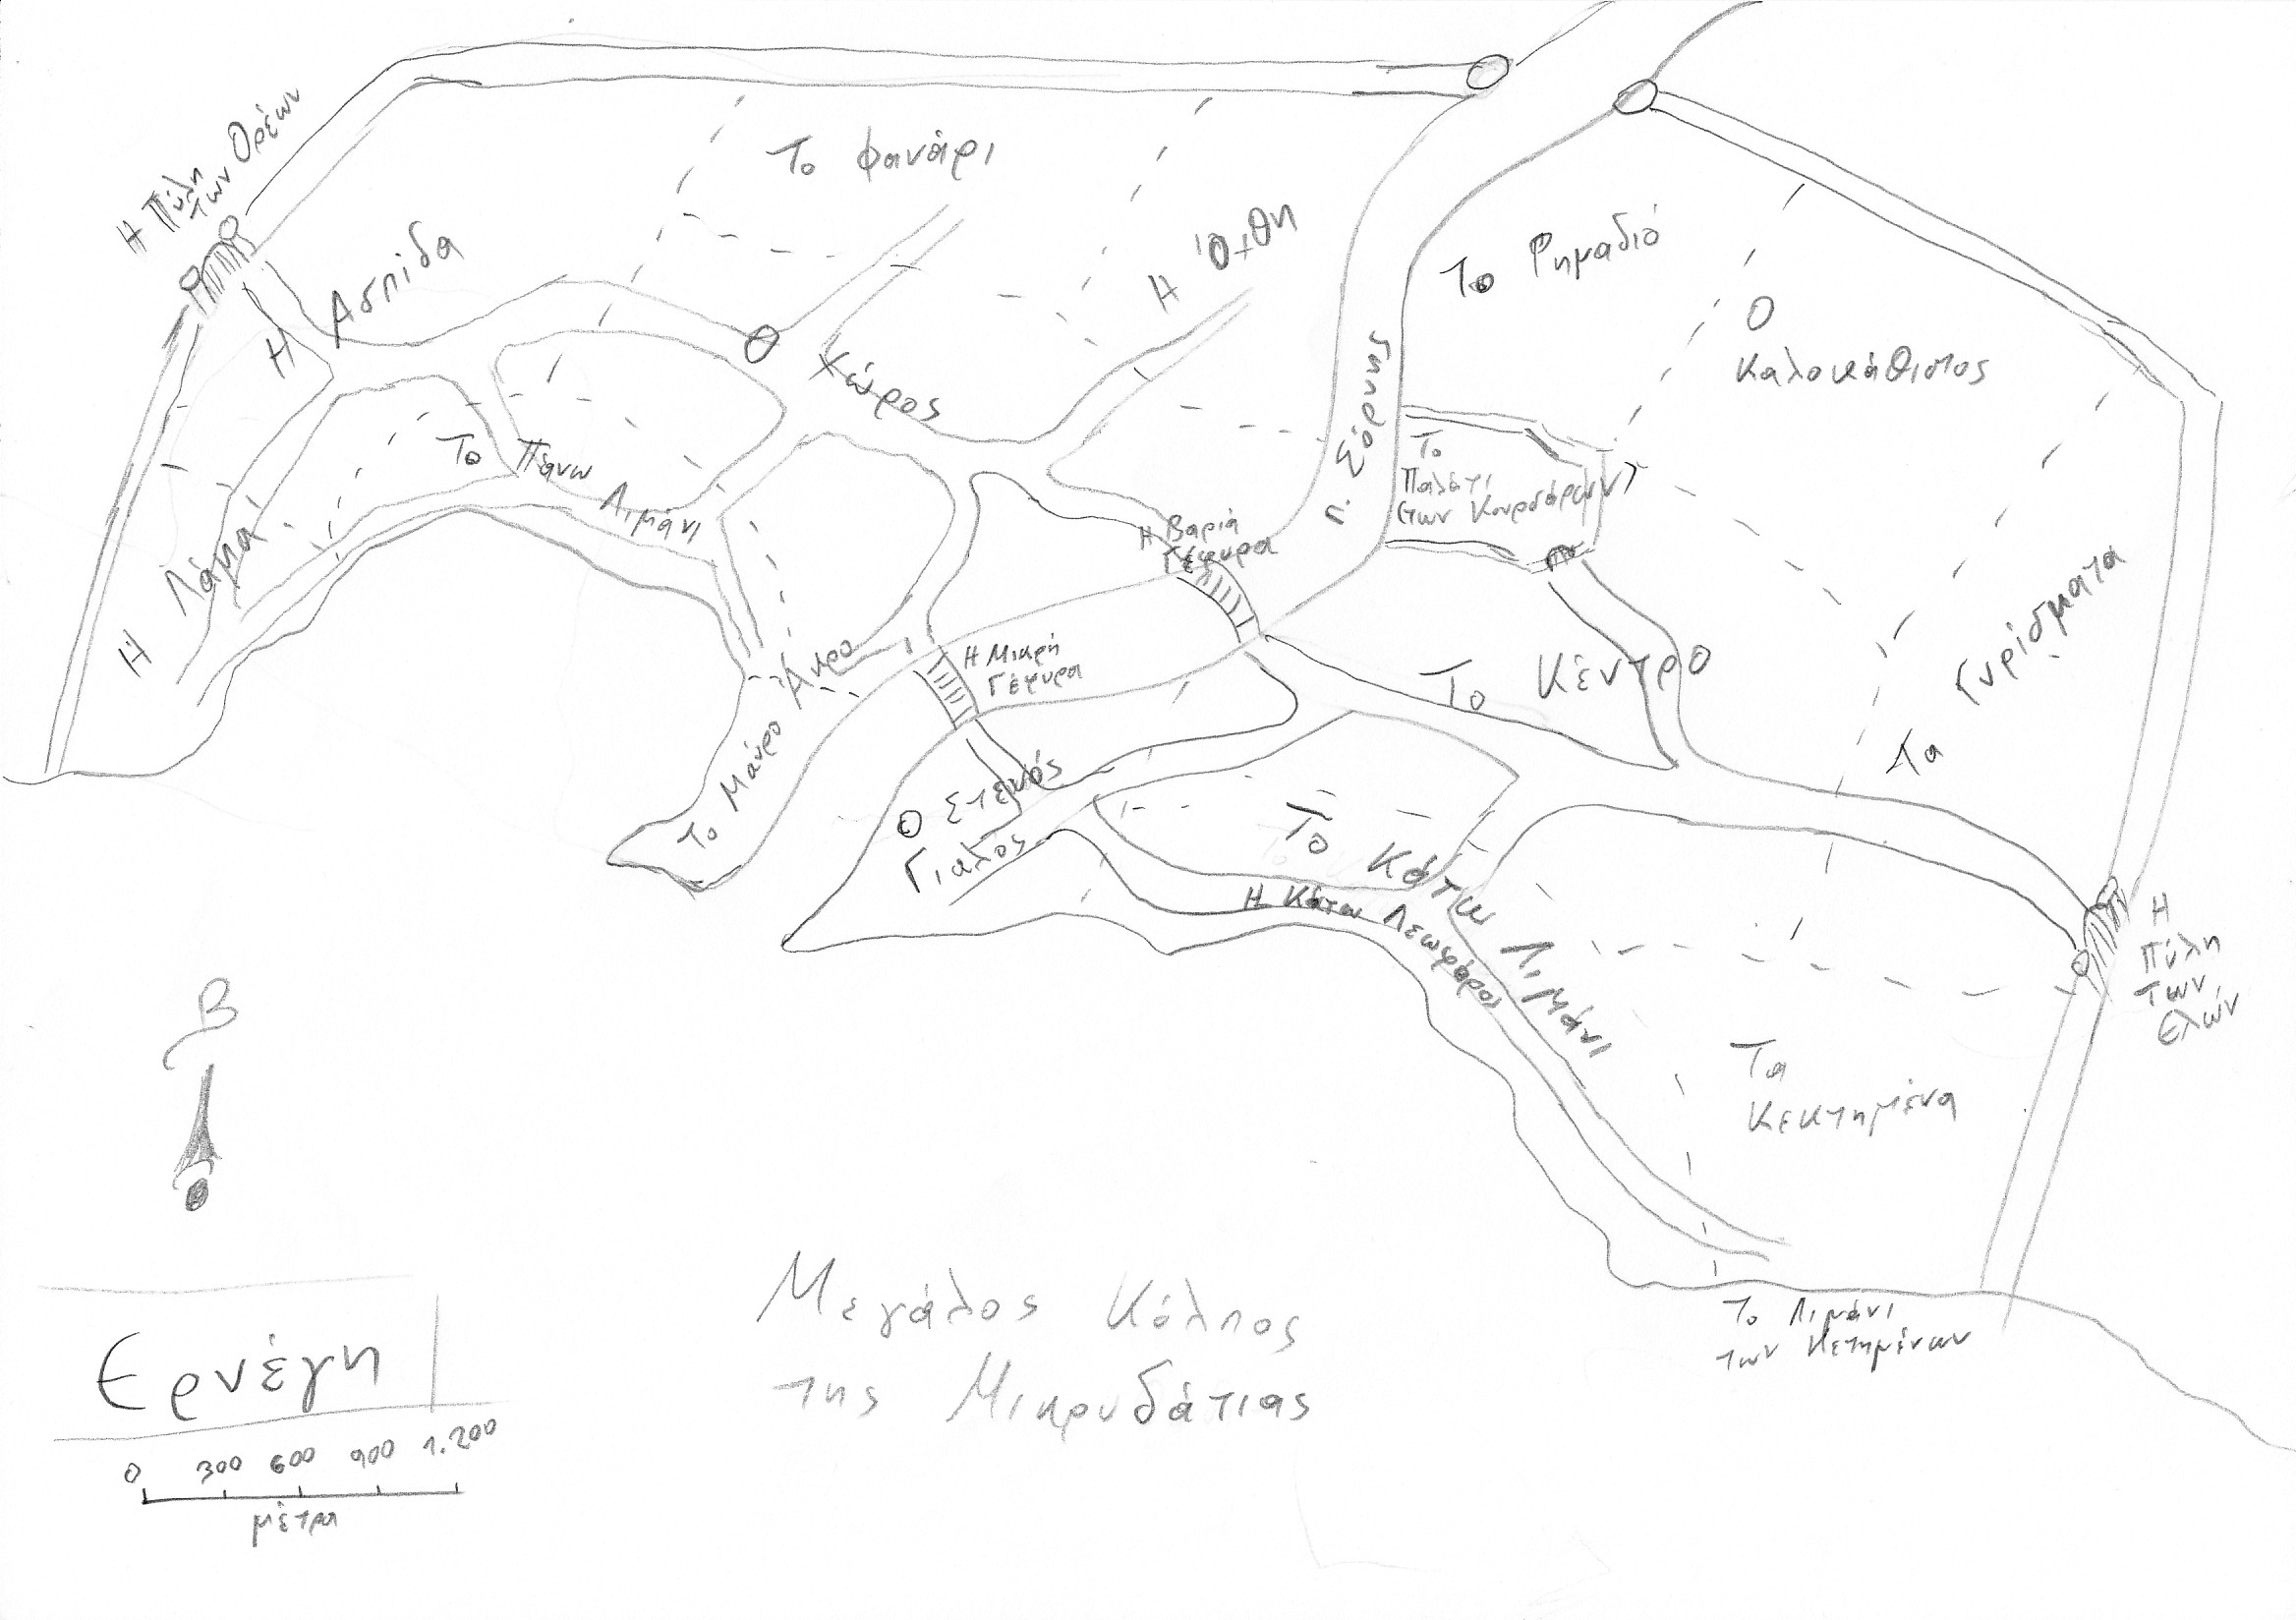 Η Πύλη
των Ορέων
Το Φανάρι
Η Όχθη
Το Ρημαδιό
Ο
Καλοκάθιστος
Η Ασπίδα
Χώρος
π. Σόρνης
Το
Παλάτι
(των Κουρσάρων)
Το Πάνω Λιμάνι
Η Βαριά
Γέφυρα
Η Λάμια
Το Μαύρο Άκρο
Η Μικρή
Γέφυρα
Το Κέντρο
Τα Γυρίσματα
Ο Στενός
Γιαλός
Το Κάτω Λιμάνι
Η Κάτω Λεωφόρος
Η
Πύλη
των
Ελών
Τα
Κεκτημένα
Β
Το Λιμάνι
των Κετημένων
Μεγάλος Κόλπος
της Μικρυδάτιας
Ερνέγη
0 300 600 900 1.200
μέτρα